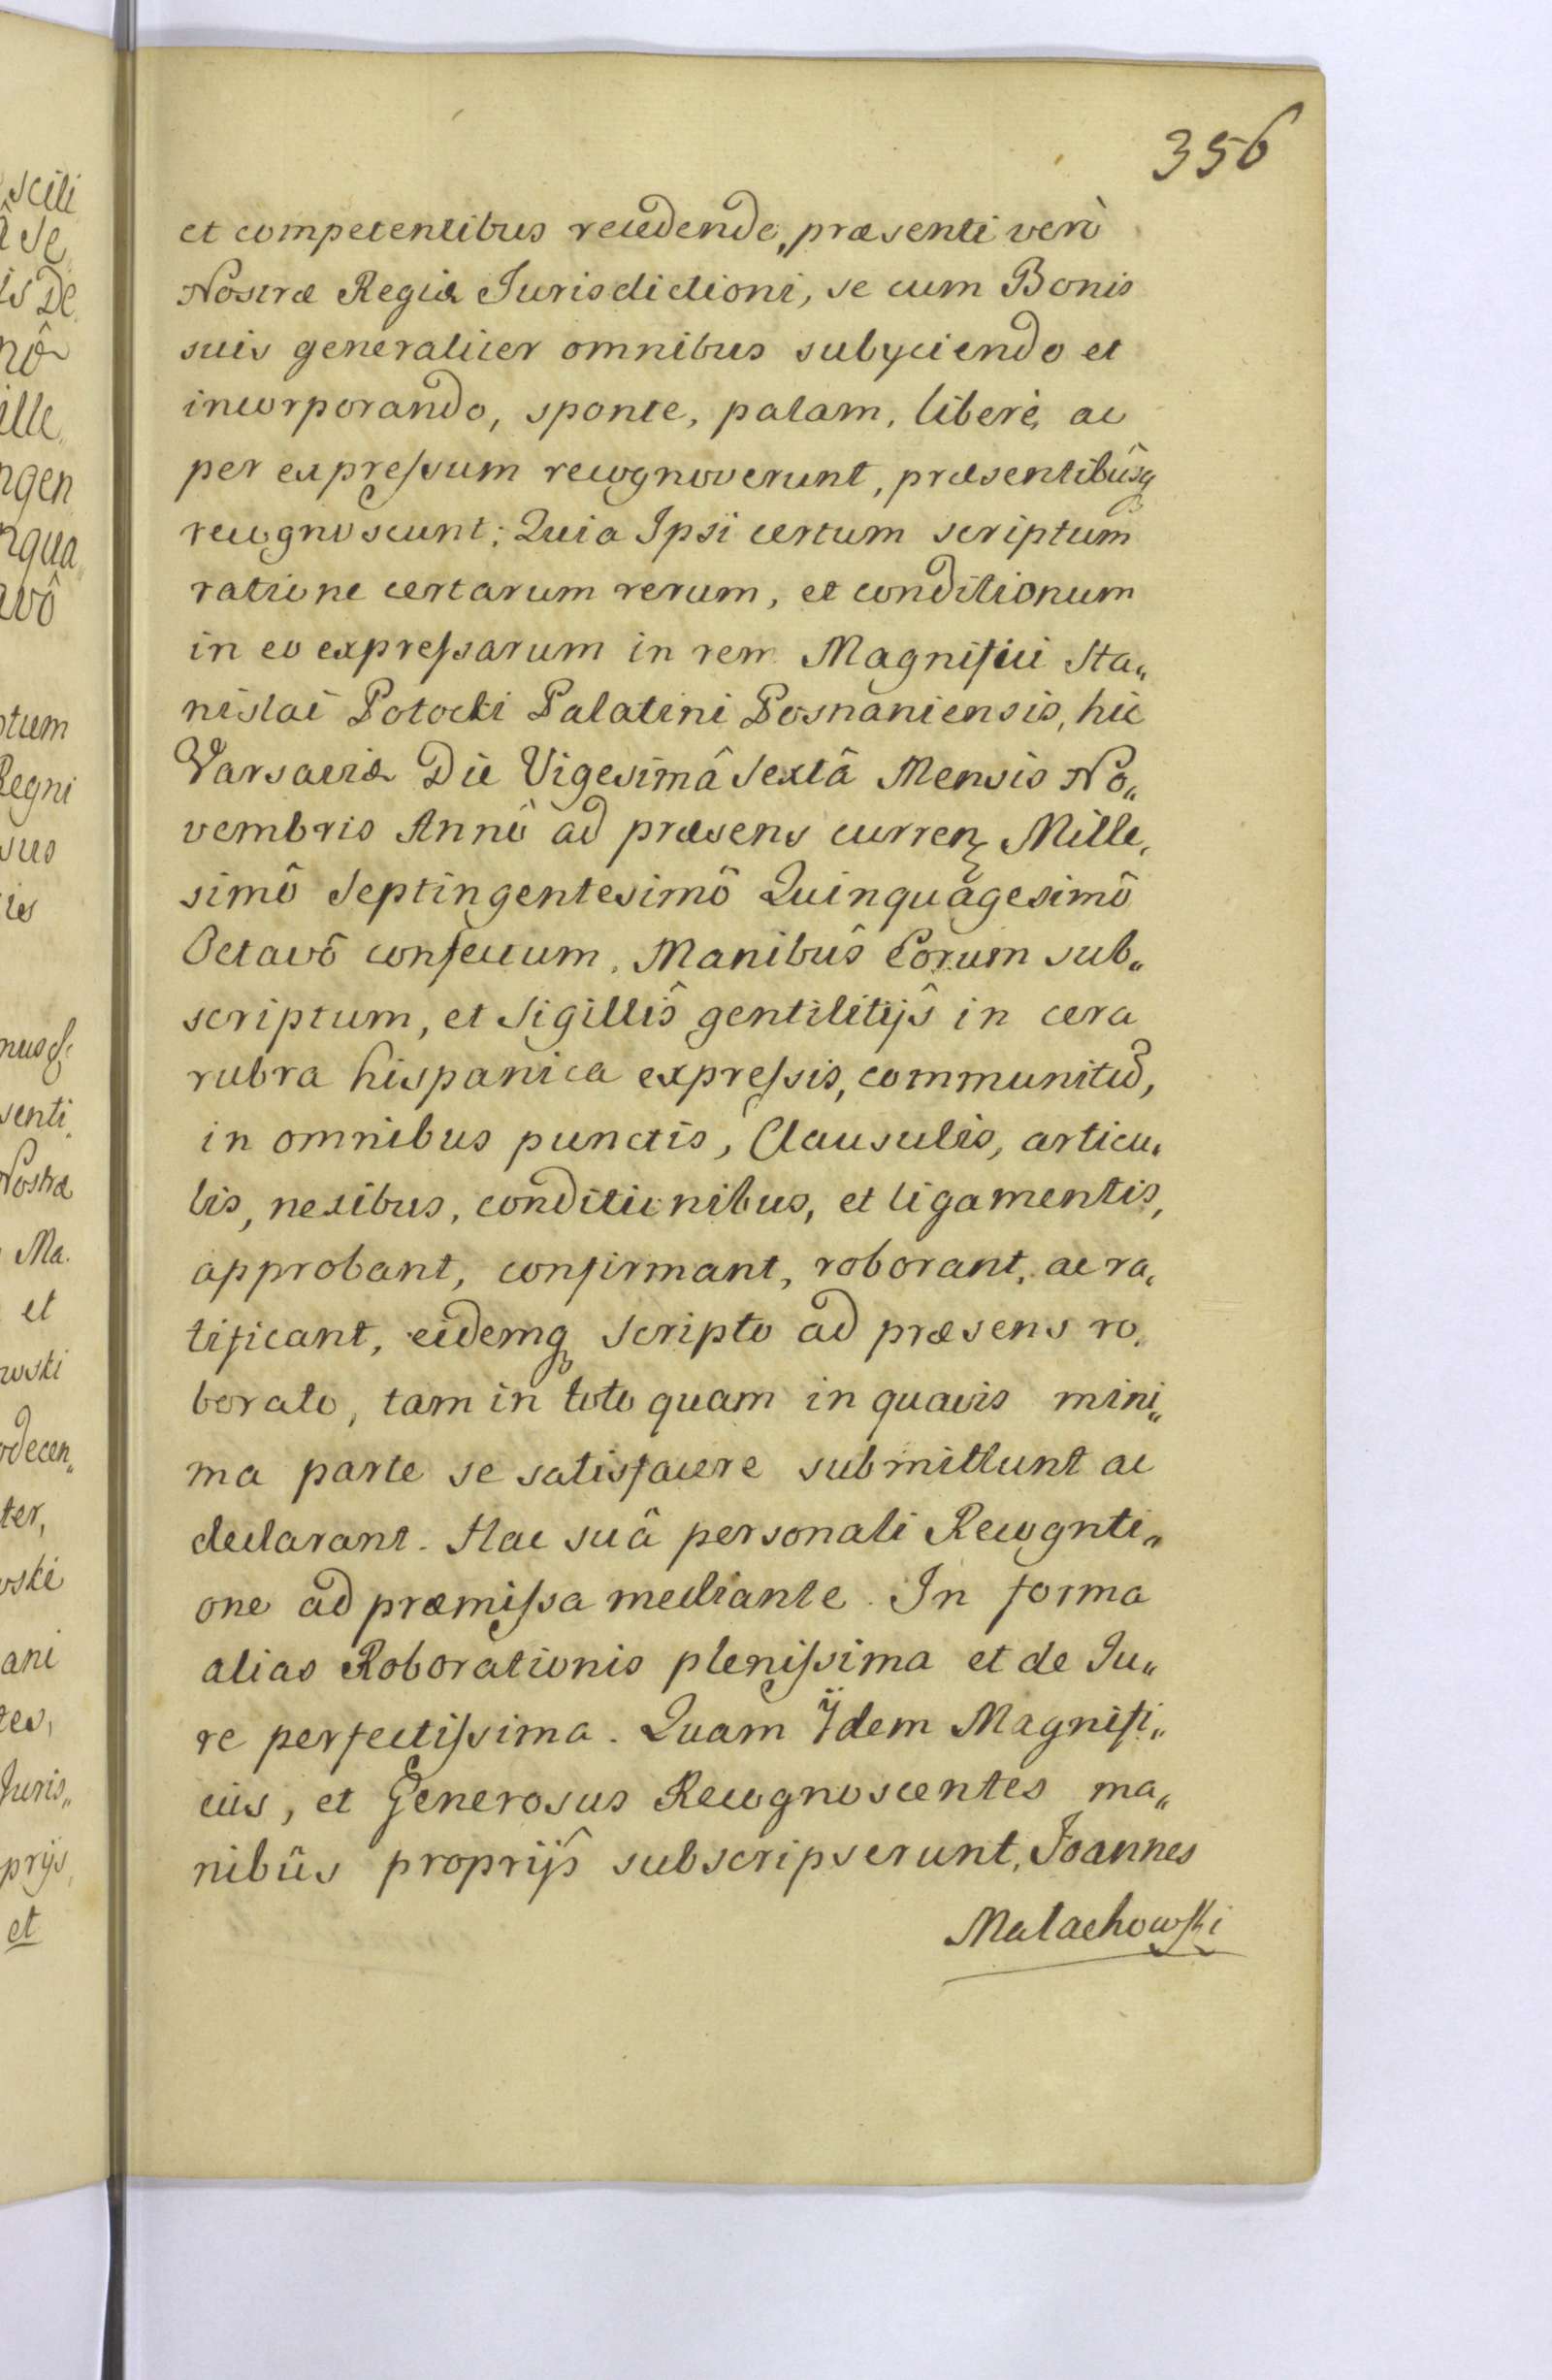 356
et competentibus recedendo, præsenti verò
Nostræ Regiæ Jurisdictioni, se cum Bonis
suis generaliter omnibus subyciendo et
incorporando, sponte, palam, liberè, ac
per expreſsum recognoverunt, præsentibûsq
recognoscunt; Quia Ipsi certum scriptum
ratione certarum rerum, et conditionum
in eo expreſsarum in rem Magnifici Sta„
nislai Potocki Palatini Posnaniensis, hic
Varsaviæ Die Vigesimâ Sextâ Mensis No„
vembris Annô ad præsens curren Mille„
simô Septingentesimô Quinquagesimô
Octavô confectum, Manibûs Eorum sub„
scriptum, et Sigillîs gentilitijs in cera
rubra hispanica expreſsis, communitũ,
in omnibus punctis, Clausulis, articu„
lis, nexibus, conditionibus, et ligamentis,
approbant, confirmant, roborant, ac ra„
tificant, eidemq scripto ad præsens ro„
borato, tam in toto quam in quavis mini„
ma parte se satisfacere submittunt ac
declarant. Hac suâ personali Recognti„
one ad præmiſsa mediante. In forma
alias Roborationis pleniſsima et de Ju„
re perfectiſsima. Quam Ÿdem Magnifi„
cus, et Generosus Recognoscentes ma„
nibûs proprijs subscripserunt, Joannes
Malachowſki
scili
â se
is De
nô
ille
ngen
nqua
avô
ptum
Regni
suo
ies
senti
Nostræ
Ma.
et
wski
odecen„
ter,
wski
ani
tes,
Juris„
prijs
et